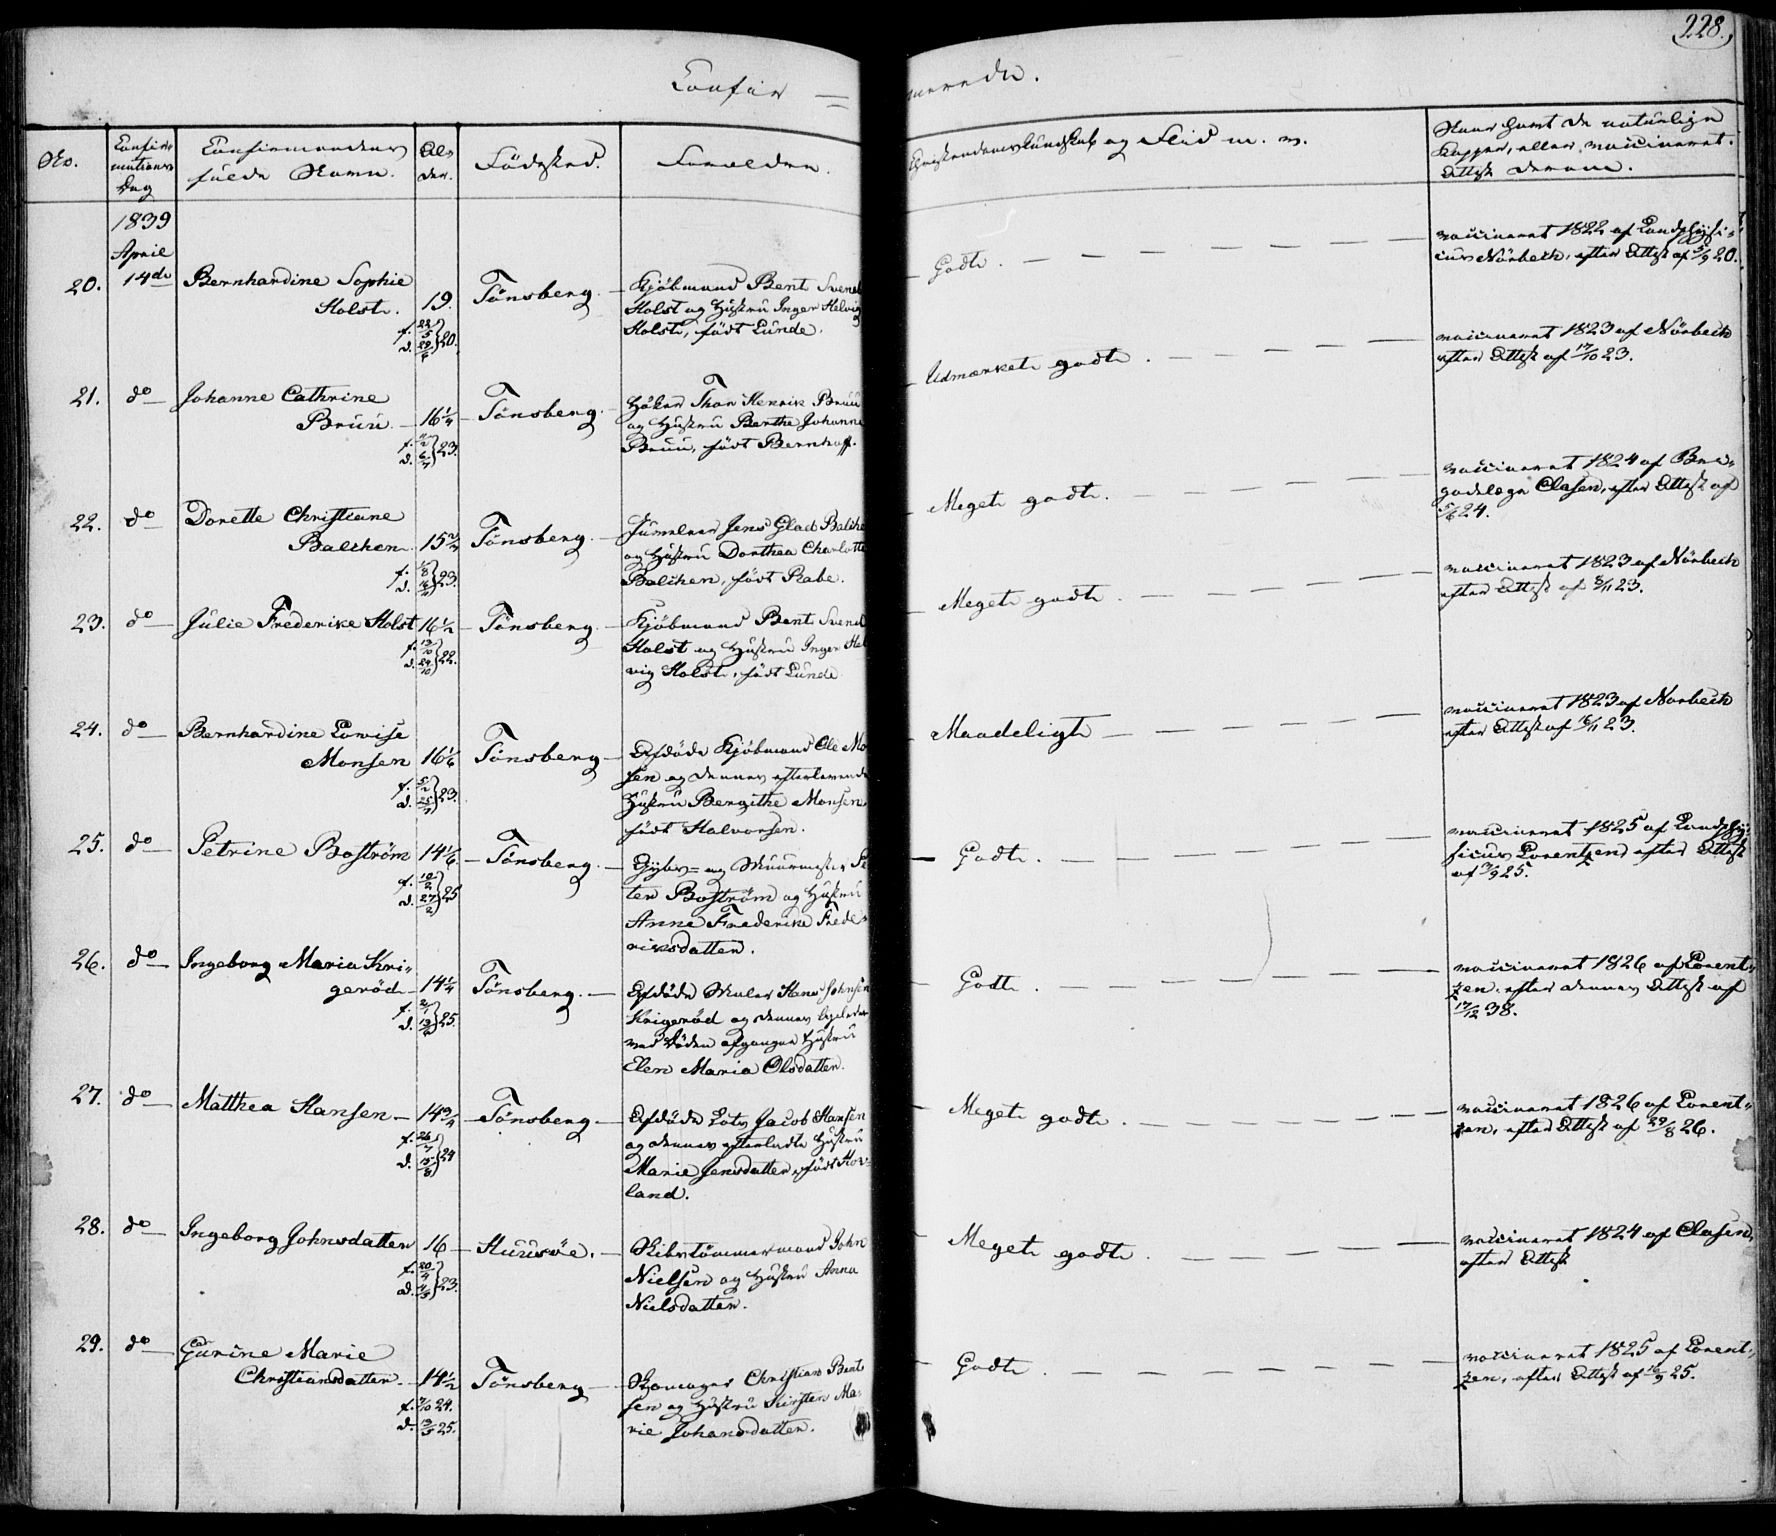 228.
Confir = merede.
No.
Confir-
mations
Dag
Confirmandens
fulde Navn.
Al-
der.
Födested.
Forældre.
Christendomskundskab og Flid m. v.
Naar havt de naturlige
Kopper, eller vaccineret.
Attest derom.
1839
April
20. 14de Bernhardine Sophie
Holst. 19.
f. d. 20.
Tönsberg.
Kjöbmand Bent Svend
Holst og Hustru Inger Helvig
Holst, födt Lunde.
Godt.
vaccineret 1822 af Landphysi-
cus Nörbech, efter Attest af 5/9 20.
21. do Johanne Cathrine
Bruu 16 1/4
f. d. 6/4 23.
Tönsberg.
Höker Thor Henrik Bruu
og Hustru Berthe Johanne
Bruu, födt Bernhoff.
Udmærket godt.
vaccineret 1823 af Nörbech
efter Attest af 17/10 23.
22. do Dorette Christiane
Balchen 15 3/4
f. d. 23.
Tönsberg.
Juveleer Jens Glad Balche
og Hustru Dorthea Charlotte
Balchen, födt Rabe.
Meget godt.
vaccineret 1824 af Bri-
gadelæge Clasen, efter Attest af
5/6 24.
23. do Julie Frederike Holst 16 1/2
f. 13/10 d. 24/10 22.
Tönsberg
Kjöbmand Bent Svend
Holst og Hustru Inger Hel
vig Holst, födt Lunde
Meget godt.
vaccineret 1823 af Nörbech
efter Attest af 8/11 23.
24. do Bernhardine Lovise
Monsen 16 1/6
f. 5/2 d. 23.
Tönsberg
Afdöde Kjöbmand Ole Mo
sen og dennes efterlevende
Hustru Bergithe Monsen
födt Halvorsen.
Maadeligt
vaccineret 1823 af Norbech
efter Attest af 16/11 23.
25. do Petrine Boström 14 1/6
f. 10/2 d. 27/2 25
Tönsberg.
Gibs= og Muurmester Pe
ter Boström og Hustru
Anne Frederike Frede-
riksdatter.
Godt.
vaccineret 1825 af Landphy-
sicus Lorentzen, efter Attest
af 3/9 25.
26. do Ingeborg Maria Kri-
geröd 14 1/4
f. 2/1 d. 25.
Tönsberg.
Afdöde Maler Hans Johnsen
Krigeröd og dennes ligeledes
ved Döden afgangne Hustru
Elen Maria Olsdatter.
Godt.
vaccineret 1826 af Lorent-
zen, efter dennes Attest af
17/12 38.
27. do Matthea Hansen 14 3/4
f. 26/7 d. 15/8 24
Tönsberg
Afdöde Lots Jacob Hansen
og dennes efterladte Hustru
Marie Jensdatter, födt Hov-
land.
Meget godt.
vaccineret 1826 af Lorent-
zen, efter Attest af 29/8 26.
28. do Ingeborg Johnsdatter 16
f. 20/4 d. 4/5 23.
Huusöe.
Skibstömmermand John
Nielsen og Hustru Anna
Nielsdatter.
Meget godt.
vaccineret 1824 af Clasen,
efter Attest
29. do Gurine Marie
Christiansdatter 14 1/2
f. 7/10 24.
d. 13/3 25.
Tönsberg
Skomager Christian Bent
sen og Hustru Kirsten Ma-
rie Johansdatter.
Godt
vaccineret 1825 af Lorent-
zen, efter Attest af 16/9 25.